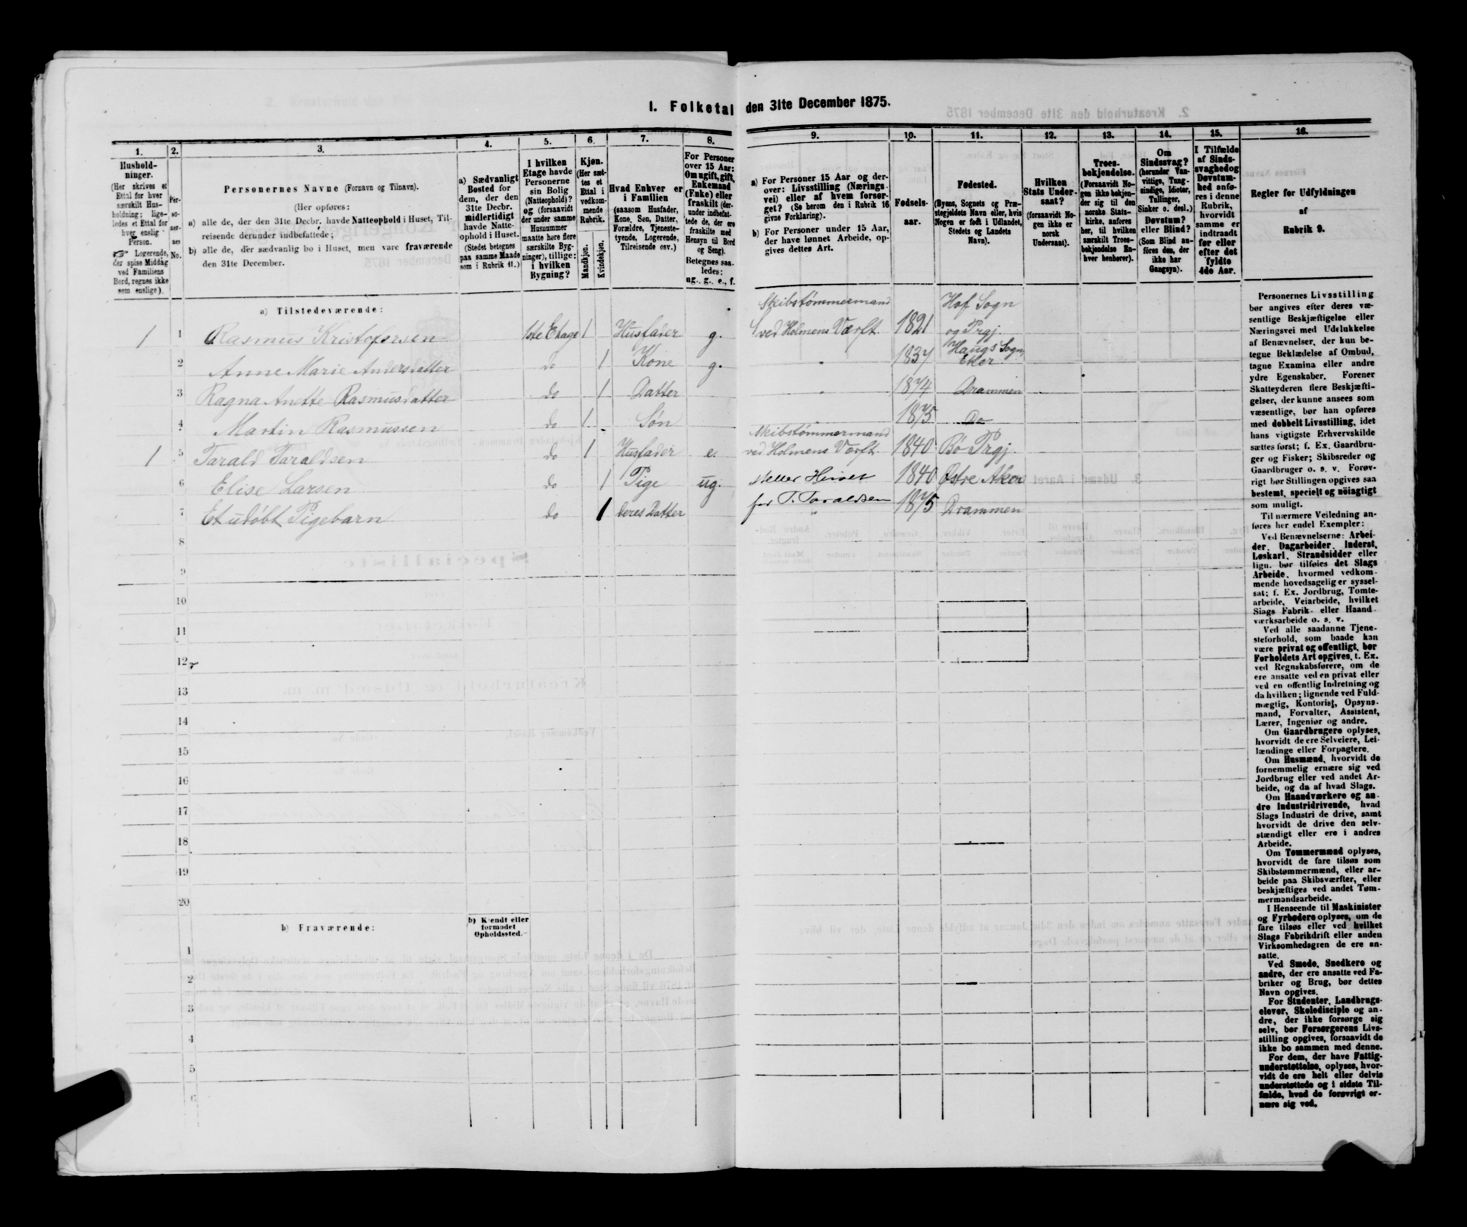 1. Folketal den 31te December 1875.
1.
2.
3.
4.
5.
6.
7.
8.
9.
10.
11.
12.
13.
14.
15.
16.
Husholdninger.
(Her skrives et Ettal for hver særskilt Husholdning; ligeledes et Ettal for hver enslig Person.
Logerende, der spise Middag ved Familiens Bord, regnes ikke som enslige).
Personernes No.
Personernes Navne (Fornavn og Tilnavn).
(Her opføres:
a) alle de, der den 31te Decbr. havde Natteophold i Huset, Tilreisende derunder indbefattede;
b) alle de, der sædvanlig bo i Huset, men vare fraværende den 31te December.
a) Sædvanligt Bosted for dem, der den 31te Decbr. midlertidigt havde Natteophold i Huset.
(Stedet betegnes paa samme Maade som i Rubrik 11.)
I hvilken Etage havde Personerne sin Bolig (Natteophold)? og (forsaavidt der under samme Husnummer maatte høre flere særskilte Bygninger), tillige: i hvilken Bygning?
Kjøn.
(Her sættes et Ettal i vedkommende Rubrik.
Mandkjøn.
Kvindekjøn.
Hvad Enhver er i Familien
(saasom Husfader, Kone, Søn, Datter, Forældre, Tjenestetyende, Logerende, Tilreisende osv.)
For Personer over 15 Aar: Om ugift, gift, Enkemand (Enke) eller fraskilt (derunder indbefattede de, der ere fraskilte med Hensyn til Bord og Seng).
Betegnes saaledes:
ug., g., e., f.
a) For Personer 15 Aar og derover: Livsstilling (Næringsvei) eller af hvem forsørget? (Se herom den i Rubrik 16 givne Forklaring).
b) For Personer under 15 Aar, der have lønnet Arbeide, opgives dettes Art.
Fødselsaar.
Fødested.
(Byens, Sognets og Præstegjeldets Navn eller, hvis Nogen er født i Udlandet, Stedets og Landets Navn).
Hvilken Stats Undersaat?
(forsaavidt Nogen ikke er norsk Undersaat).
Troesbekjendelse.
(Forsaavidt Nogen ikke bekjender sig til den norske Statskirke, anføres her, til hvilken særskilt Troesbekjendelse Enhver henhører).
Om Sindssvag? (herunder Vanvittige, Tungsindige, Idioter, Tullinger, Sinker o. desl.) Døvstum? eller Blind? (Som Blind anføres den, der ikke har Gangsyn).
I Tilfælde af Sindssvaghed og Døvstumhed anføres i denne Rubrik, hvorvidt samme er indtraadt før eller efter det fyldte 4de Aar.
Regler for Udfyldningen
af
Rubrik 9.
a) Tilstedeværende:
1 1 Rasmus Kristofersen 1ste Etage 1 Husfader g. Skibstømmermand ved Holmens Værft. 1821 Hof Sogn og Prgj.
2 Anne Marie Andersdatter do 1 Kone g. " 1837 Haugs Sogn Eker
3 Ragna Anette Rasmusdatter do 1 Datter 1874 Drammen
4 Martin Rasmussen do 1 Søn 1875 Do
1 5 Tarald Taraldsen do 1 Husfader e. Skibstømmermand ved Holmens Værft. 1840 Bø Prgj.
6 Elise Larsen do 1 Pige ug. steller Huset for T. Taraldsen 1840 Østre Aker
7 Et udøbt Pigebarn do 1 deres Datter " 1875 Drammen
8
9
10
11
12
13
14
15
16
17
18
19
20
b) Fraværende:
b) Kjendt eller formodet Opholdssted.
1
2
3
4
5
6
Personernes Livsstilling bør angives efter deres væsentlige Beskjæftigelse eller Næringsvei med Udelukkelse af Benævnelser, der kun betegne Beklædelse af Ombud, tagne Examina eller andre ydre Egenskaber. Forener Skatteyderen flere Beskjæftigelser, der kunne ansees som væsentlige, bør han opføres med dobbelt Livsstilling, idet hans vigtigste Erhvervskilde sættes først; f. Ex. Gaardbruger og Fisker; Skibsreder og Gaardbruger o. s. v. Forøvrigt bør Stillingen opgives saa bestemt, specielt og nøiagtigt som muligt.
Til nærmere Veiledning anføres her endel Exempler:
Ved Benævnelserne: Arbeider, Dagarbeider, Inderst, Løskarl, Strandsidder eller lign. bør tilføies det Slags Arbeide, hvormed vedkommende hovedsagelig er sysselsat; f. Ex. Jordbrug, Tomtearbeide, Veiarbeide, hvilket Slags Fabrik- eller Haandværksarbeide o. s. v.
Ved alle saadanne Tjenesteforhold, som baade kan være privat og offentligt, bør Forholdets Art opgives, f. Ex. ved Regnskabsførere, om de ere ansatte ved en privat eller ved en offentlig Indretning og da hvilken; lignende ved Fuldmægtig, Kontorist, Opsynsmand, Forvalter, Assistent, Lærer, Ingeniør og andre.
Om Gaardbrugere oplyses, hvorvidt de ere Selveiere, Leilændinge eller Forpagtere.
Om Husmænd, hvorvidt de fornemmelig ernære sig ved Jordbrug eller ved andet Arbeide, og da af hvad Slags.
Om Haandværkere og andre Industridrivende, hvad Slags Industri de drive, samt hvorvidt de drive den selvstændigt eller ere i andres Arbeide.
Om Tømmermænd oplyses, hvorvidt de fare tilsøs som Skibstømmermænd, eller arbeide paa Skibsværfter, eller beskjæftiges ved andet Tømmermandsarbeide.
I Henseende til Maskinister og Fyrbødere oplyses, om de fare tilsøs eller ved hvilket Slags Fabrikdrift eller anden Virksomhedsgren de ere ansatte.
Ved Smede, Snedkere og andre, der ere ansatte ved Fabriker og Brug, bør dettes Navn opgives.
For Studenter, Landbrugselever, Skoledisciple og andre, der ikke forsørge sig selv, bør Forsørgerens Livsstilling opgives, forsaavidt de ikke bo sammen med denne.
For dem, der have Fattigunderstøttelse, oplyses, hvorvidt de ere helt eller delvis understøttede og i sidste Tilfælde, hvad de forøvrigt ernære sig ved.